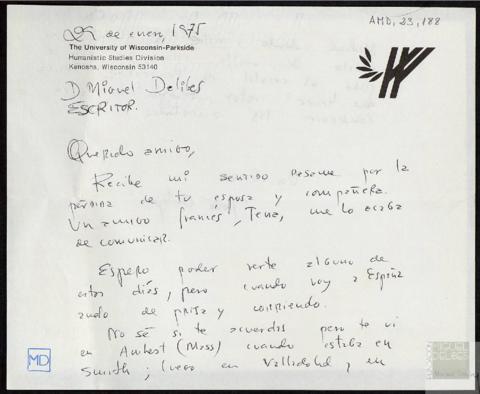 AMD, 23, 188
29 de enero, 1975
The University of Wisconsin-Parkside
Humanistic Studies Division
Kenosha, Wisconsin 53140
D. Miguel Delibes
ESCRITOR.
Querido amigo,
Recibe mi sentido pésame por la
pérdida de tu esposa y compañera.
Un amigo francés, Tena, me lo acaba
de comunicar.
Espero poder verte alguno de
estos días, pero cuando voy a España
ando de prisa y corriendo.
No sé si te acuerdas pero te vi
en Amherst (Mass) cuando estaba en
Smith; luego en Valladolid y en
MD
MIGUEL
DELIBES